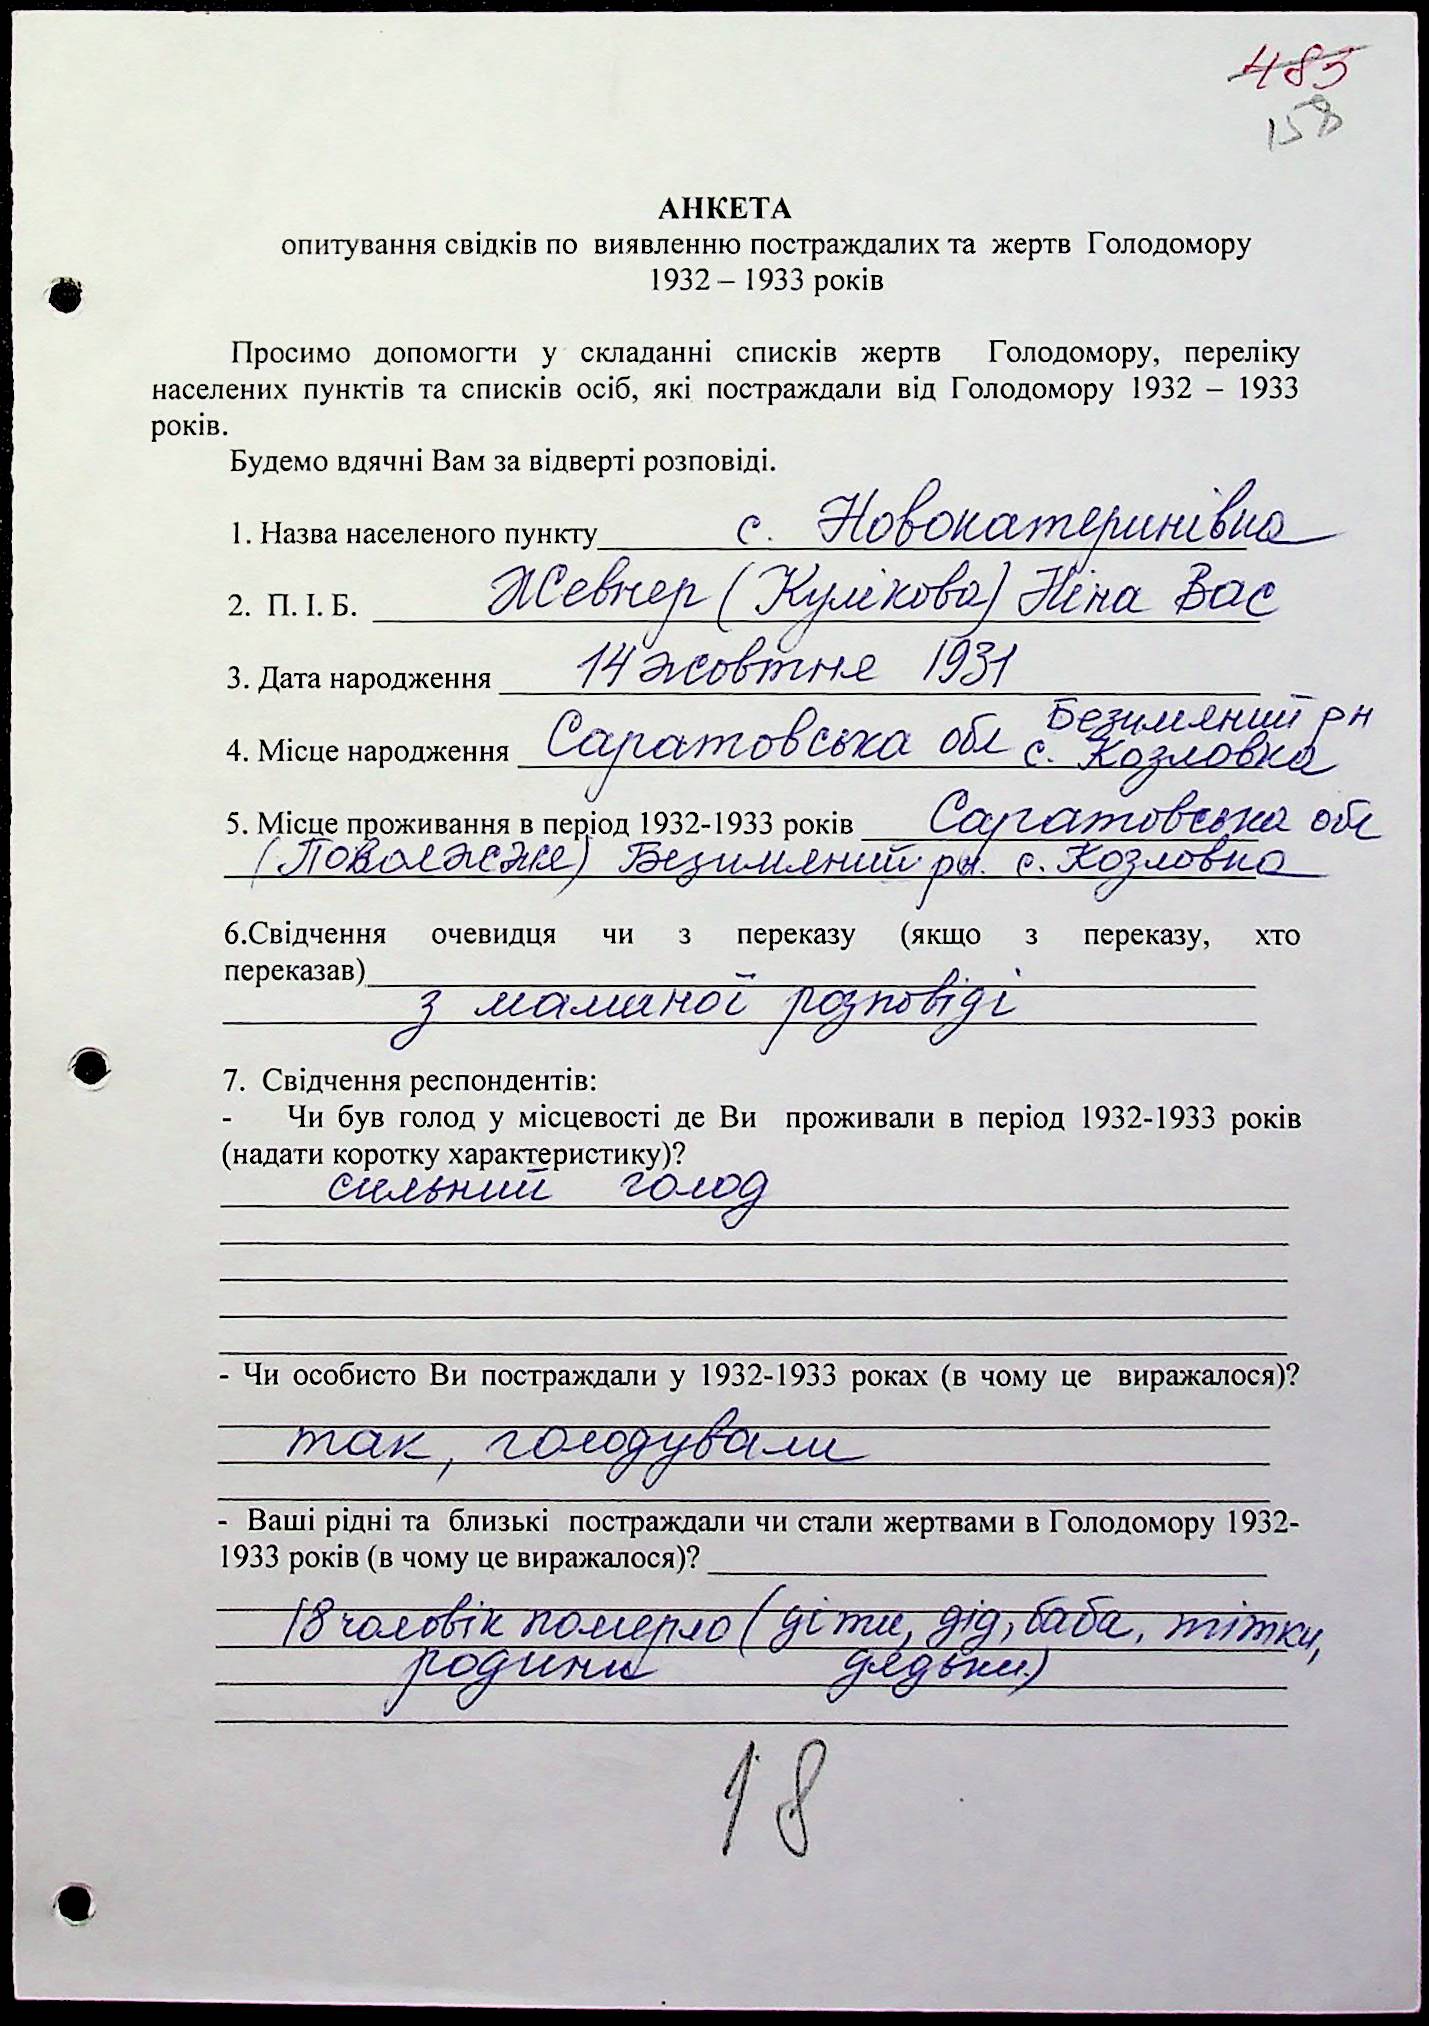 485
158
АНКЕТА
опитування свідків по виявленню постраждалих та жертв Голодомору
1932 – 1933 років
Просимо допомогти у складанні списків жертв Голодомору, переліку
населених пунктів та списків осіб, які постраждали від Голодомору 1932 – 1933
років.
Будемо вдячні Вам за відверті розповіді.
1. Назва населеного пункту с. Новокатеринівка
2. П. І. Б. Жевнер (Кулікова) Ніна Вас
3. Дата народження 14 жовтня 1931
Безимяний рн
4. Місце народження Саратовська обл с. Козловка
5. Місце проживання в період 1932-1933 років Саратовська обл
(Поволжже) Безимяний рн. с. Козловка
6.Свідчення очевидця чи з переказу (якщо з переказу, хто
переказав)
з маминої розповіді
7. Свідчення респондентів:
- Чи був голод у місцевості де Ви проживали в період 1932-1933 років
(надати коротку характеристику)?
сильний голод
- Чи особисто Ви постраждали у 1932-1933 роках (в чому це виражалося)?
так, голодували
- Ваші рідні та близькі постраждали чи стали жертвами в Голодомору 1932-
1933 років (в чому це виражалося)?
18 чоловік померло (діти, дід, баба, тітки,
родини дядьки.)
18